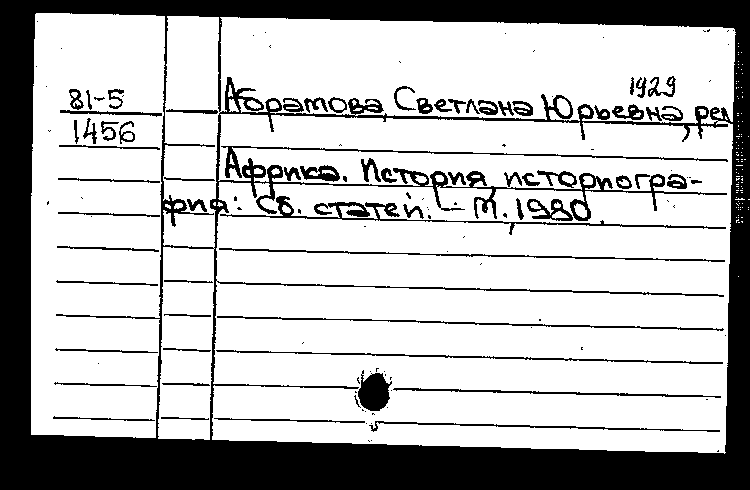 1929
81-5 Абрамова, Светлана Юрьевна, ред
1456
Африка. История, историогра-
фия: Сб. статей. — М., 1980.